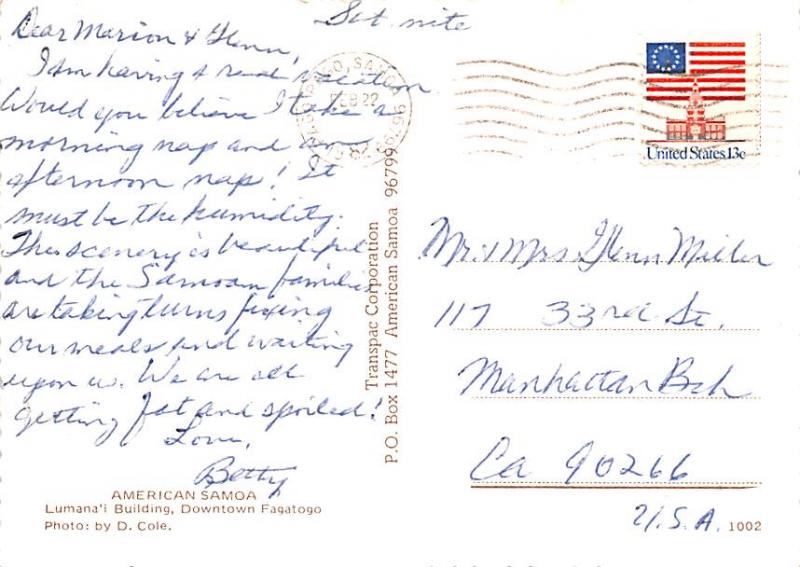 Sat nite
Dear Marion & Glenn,
I am having a real vacation
Would you believe I take a
morning nap and an
afternoon nap! It
must be the humidity.
The scenery is beautiful
and the Samoan families
are taking turns fixing
our meals and waiting
upon us. We are all
getting fat and spoiled!
Love,
Betty
AMERICAN SAMOA
Lumana'i Building, Downtown Fagatogo
Photo: by D. Cole.
Transpac Corporation
P.O. Box 1477 American Samoa 96799
PAGO PAGO, SAMOA
FEB 22
96799
United States 13c
Mr. & Mrs Glenn Miller
117 33rd St.
Manhattan Bch
Ca 90266
U.S.A.
1002